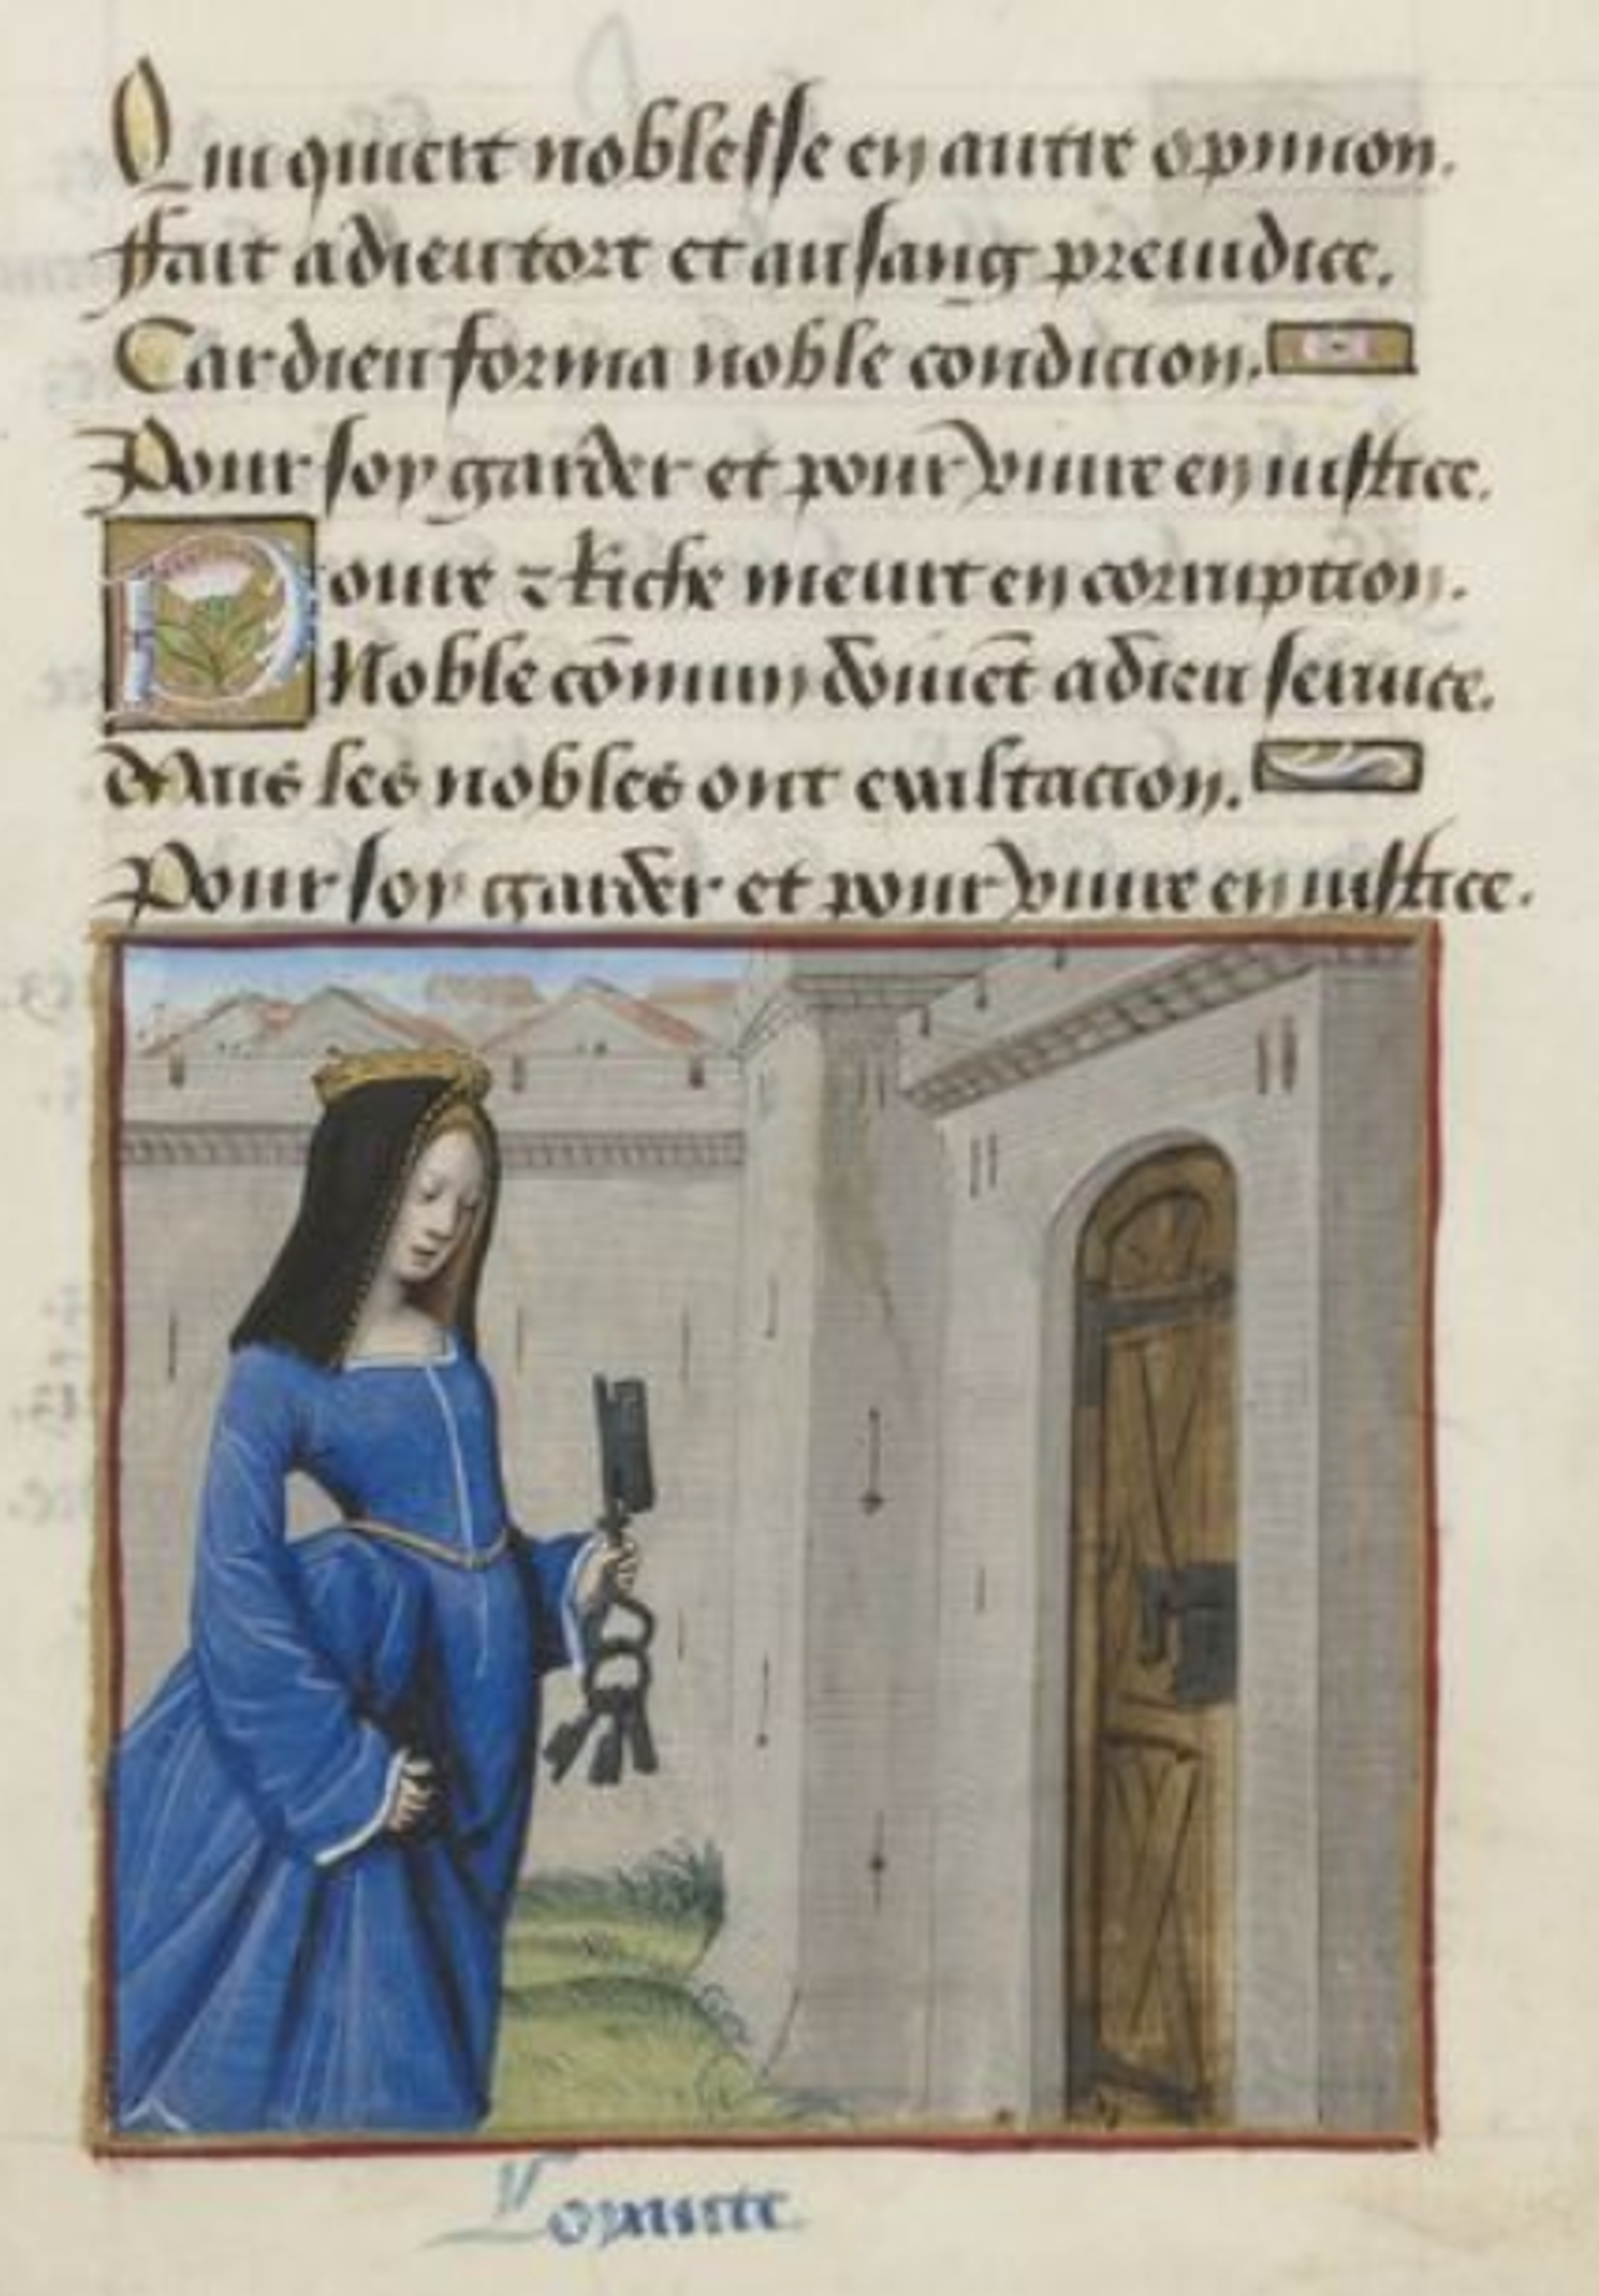 Qui quiert noblesse en autre opinion.
Fait a dieu tort et au sang preiudice.
Car dieu forma noble condicion.
Pour soy garder et pour viure en iustice.
Poure ⁊ Riche meurt en corruption.
Noble cōmun doiuēt a dieu seruice.
Mais les nobles ont exultacion.
Pour soy garder et pour viure en iustice.
Loyaute